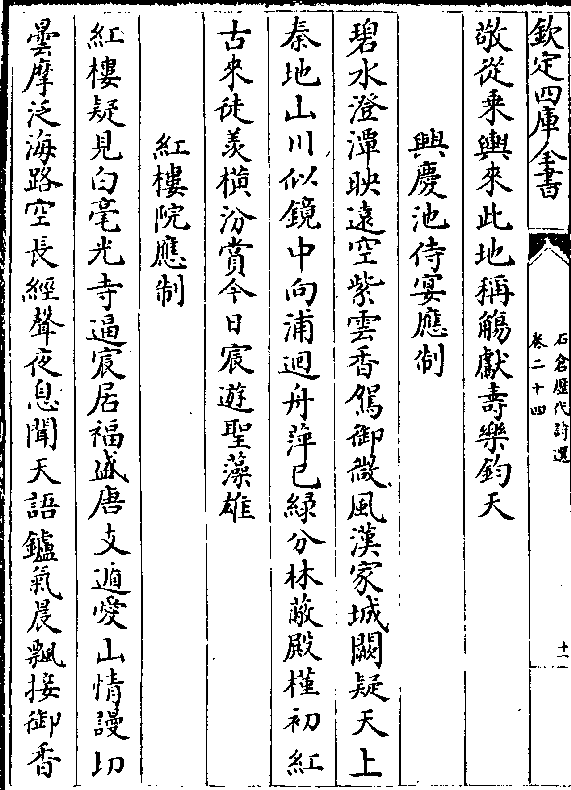 欽定四庫全書
石倉歷代詩選
卷二十四
十一
敬從乗輿來此地稱觴獻壽樂鈞天
興慶池侍宴應制
碧水澄潭映遠空紫雲香駕御微風漢家城闕疑天上
秦地山川似鏡中向浦迴舟萍已緑分林蔽殿槿初紅
古來徒羡橫汾賞今日宸遊聖藻雄
紅樓院應制
紅樓疑見白毫光寺逼宸居福盛唐支遁愛山情謾切
曇摩泛海路空長經聲夜息聞天語鑪氣晨飄接御香